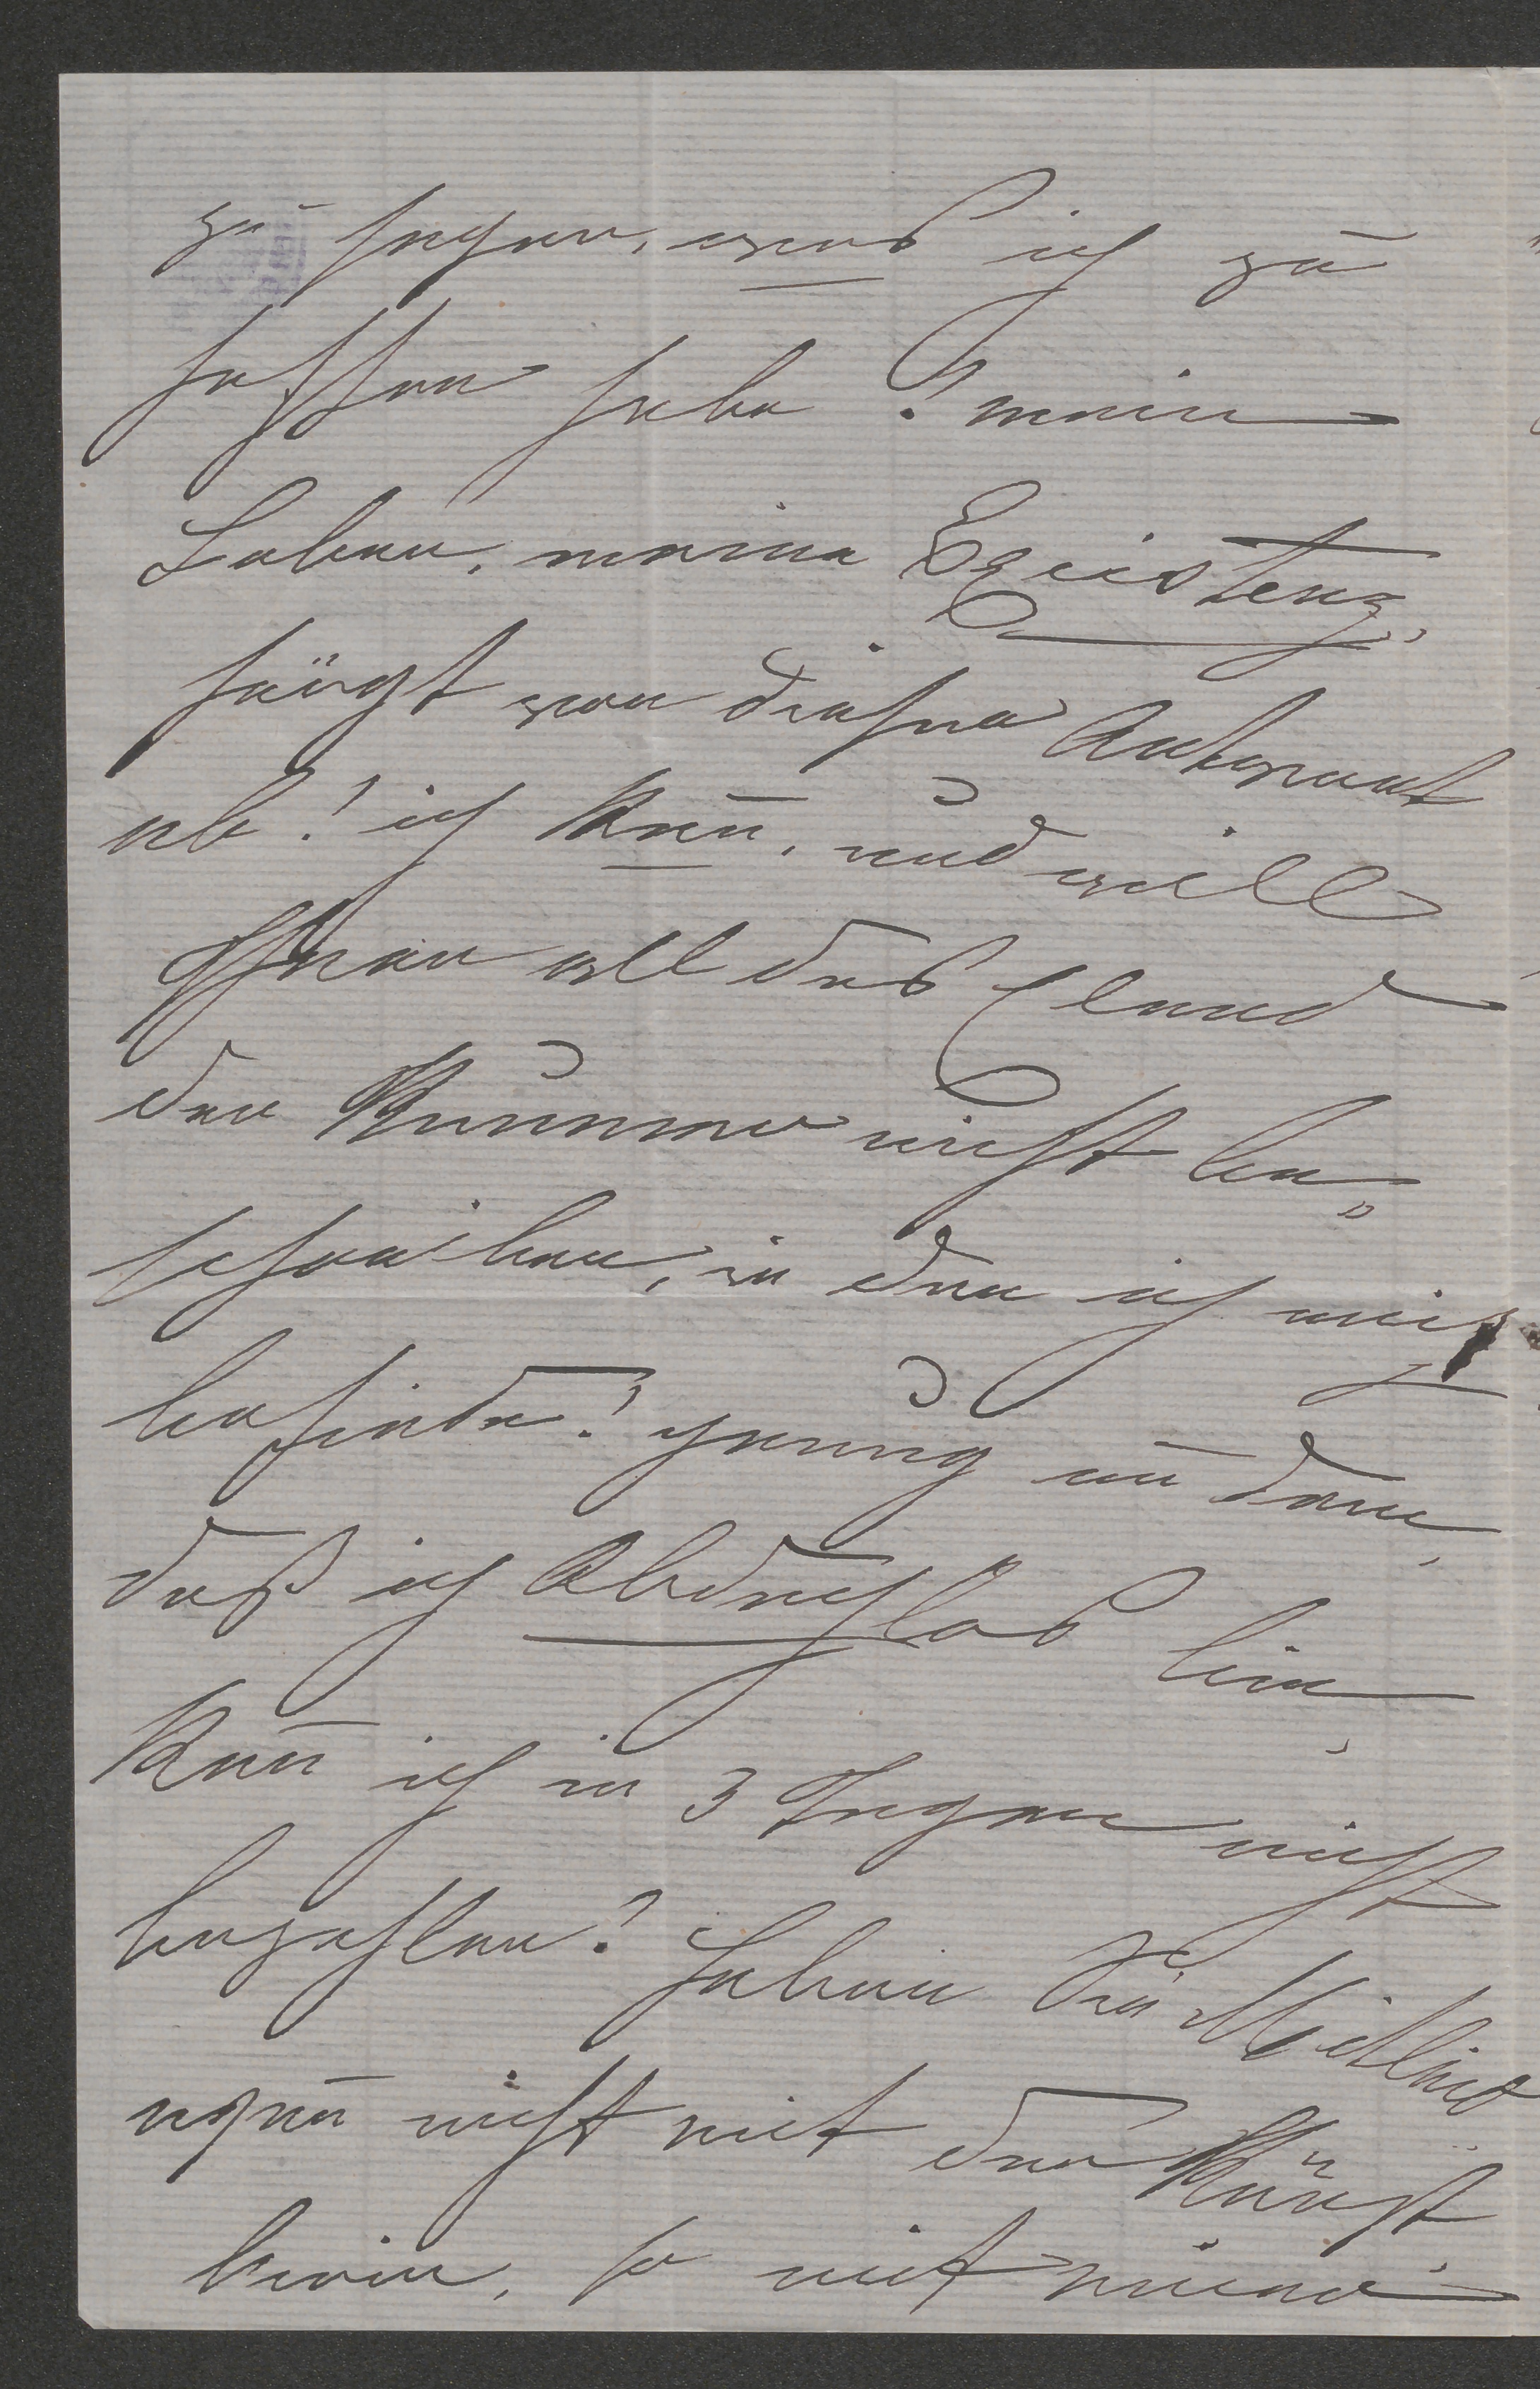 zu sagen, was ich zu
hoffen habe! mein
Leben, meine Existenz,
hängt von dieser Antwort
ab! ich kann̄, und will
Ihnen all das Elend
den Kummer nicht be„
schreiben, in dem ich mich
befinde! genug an dem,
daß ich Obdachlos bin,
kan̄ ich in 3 Tagen nicht
bezahlen! haben Sie Mitleid
wen̄ nicht mit der Künst
lerin, so mit einer